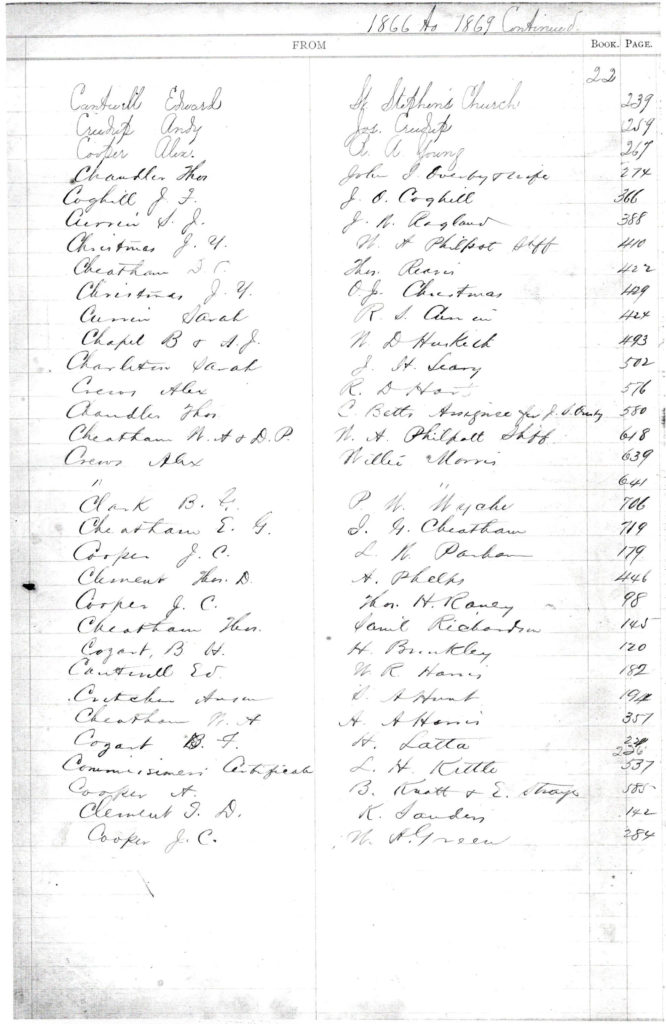 1866 to 1869 Continued.
FROM BOOK. PAGE.
22
Cantwell Edward St Stephen's Church 239
Crudup Andy Jos. Crudup 259
Cooper Alex. R. A Young 267
Chandler Thos John S Overby & wife 274
Coghill J. F. J. O. Coghill 366
Currin S. J. J. W. Ragland 388
Christmas J. Y. W A Philpot Shff 410
Cheatham D T. Thos. Reavis 422
Christmas J. Y. O J. Christmas 429
Currin Sarah R. S. Currin 424
Chapel B & A. J. W D Huskett 493
Charleton Sarah J. H. Seary 502
Crews Alex R. D 576
Chandler Thos C. Betts Assignee for J. S. 580
Cheatham W. A & D. P. W. A. Philpott Shff. 618
Crews Alex Willie Morris 639
" " 641
Clark B. F. P. W. Wyche 706
Cheatham E. G. I. G. Cheatham 719
Cooper J. C. L. W Parham 179
Clement Thos. D. A. Phelps 446
Cooper J. C. Thos. H. Raney 98
Cheatham Thos. Saml Richardson 145
Cozart, B H. H. Brinkley 120
Cantwell Ed. W R Harris 182
Critcher Anson S A Hunt 194
Cheatham W. A A. A Harris 351
Cozart B. F. H. Latta 236
Commissioners Certificate L. H. Kittle 537
Cooper A. B. Knott & E. 585
Clement T. D. K. Sanders 142
Cooper J. C. W. A. Green 284